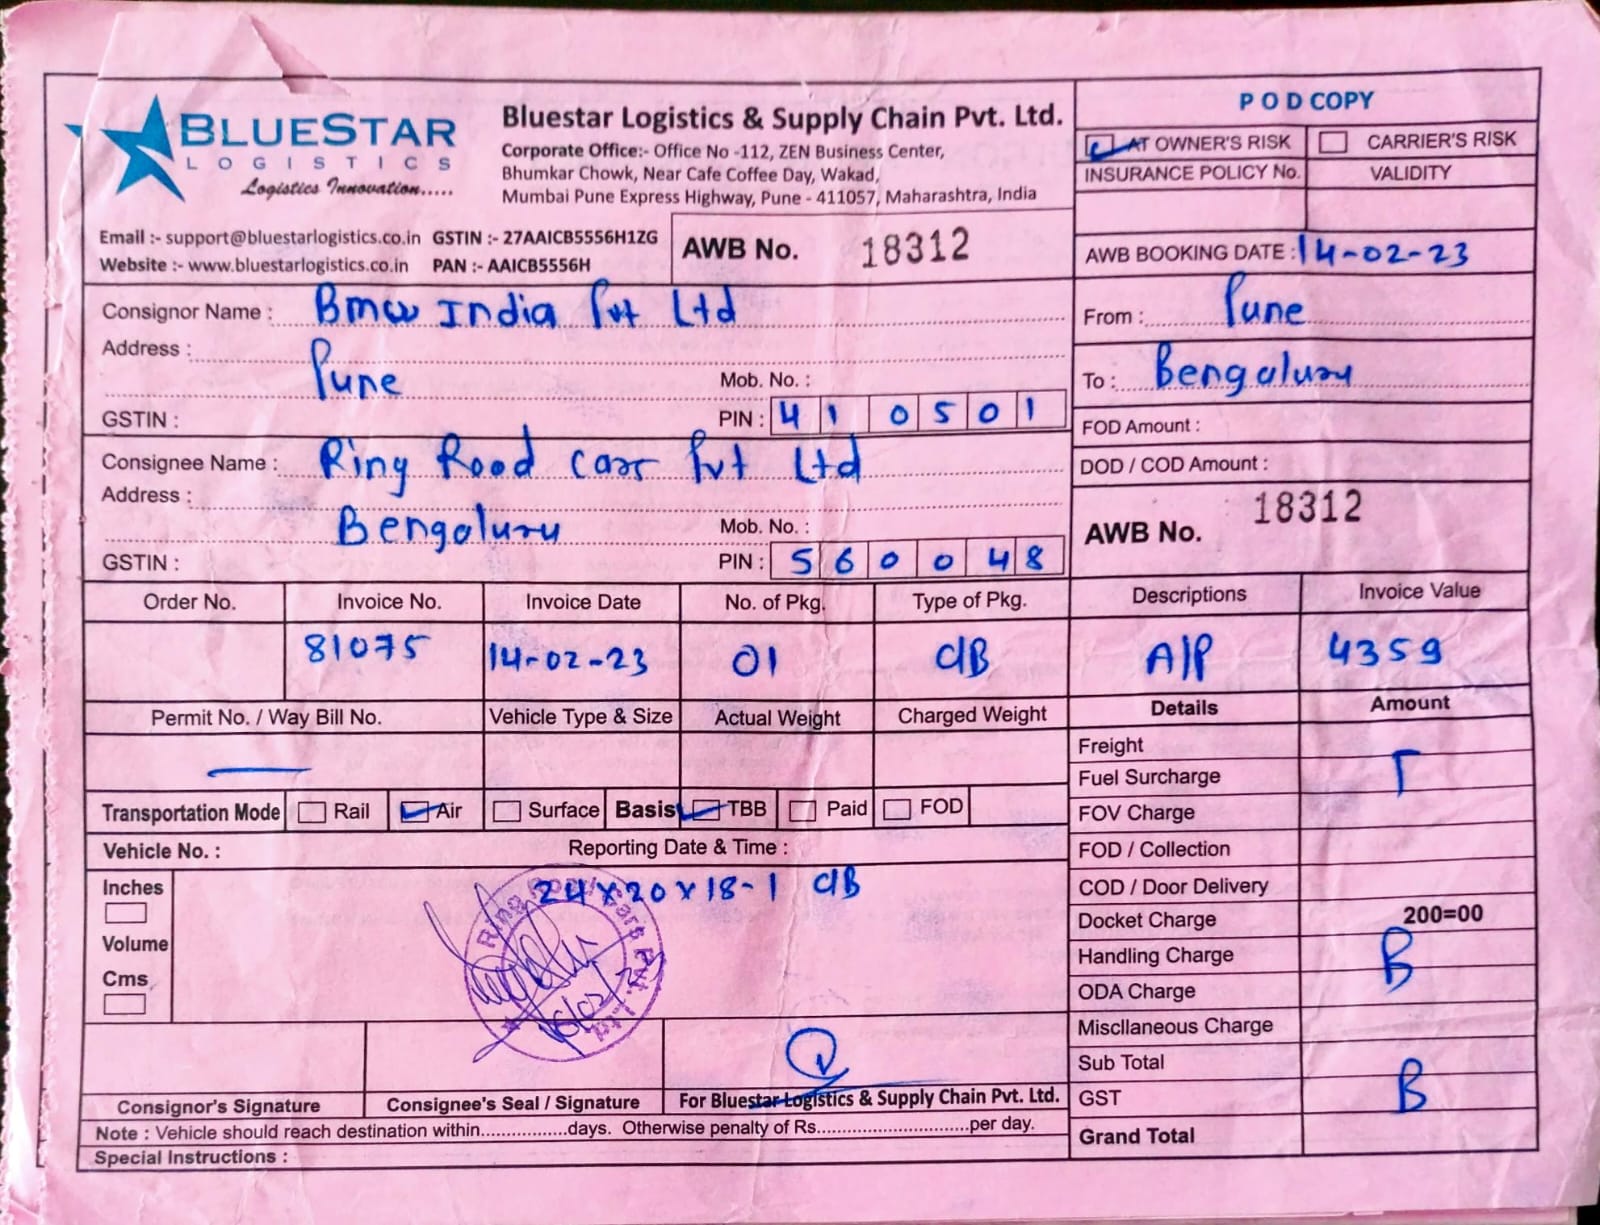 BLUESTAR
LOGISTICS
Logistics Innovation.....
Bluestar Logistics & Supply Chain Pvt. Ltd.
Corporate Office:- Office No -112, ZEN Business Center,
Bhumkar Chowk, Near Cafe Coffee Day, Wakad,
Mumbai Pune Express Highway, Pune - 411057, Maharashtra, India
Email :- support@bluestarlogistics.co.in GSTIN :- 27AAICB5556H1ZG
Website :- www.bluestarlogistics.co.in PAN :- AAICB5556H
AWB No. 18312
POD COPY
AT OWNER'S RISK CARRIER'S RISK
INSURANCE POLICY No. VALIDITY
AWB BOOKING DATE : 14-02-23
Consignor Name : Bmw India Pvt Ltd
Address :
Pune Mob. No. :
GSTIN : PIN : 410501
From : Pune
To : Bengaluru
FOD Amount :
DOD / COD Amount :
Consignee Name : Ring Rood Carr Pvt Ltd
Address :
Bengaluru Mob. No. :
GSTIN : PIN : 560048
AWB No. 18312
Order No. Invoice No. Invoice Date No. of Pkg. Type of Pkg. Descriptions Invoice Value
81075 14-02-23 01 C/B A/P 4359
Permit No. / Way Bill No. Vehicle Type & Size Actual Weight Charged Weight Details Amount
—
Transportation Mode Rail Air Surface Basis TBB Paid FOD
Vehicle No. : Reporting Date & Time :
Inches 24x20x18-1 C/B
Volume
Cms
Ring Road Cars Pvt. Ltd.
Freight
Fuel Surcharge T
FOV Charge
FOD / Collection
COD / Door Delivery
Docket Charge 200=00
Handling Charge B
ODA Charge
Miscllaneous Charge
Sub Total
GST B
Grand Total
Consignor's Signature Consignee's Seal / Signature For Bluestar Logistics & Supply Chain Pvt. Ltd.
Note : Vehicle should reach destination within.................days. Otherwise penalty of Rs..............................per day.
Special Instructions :